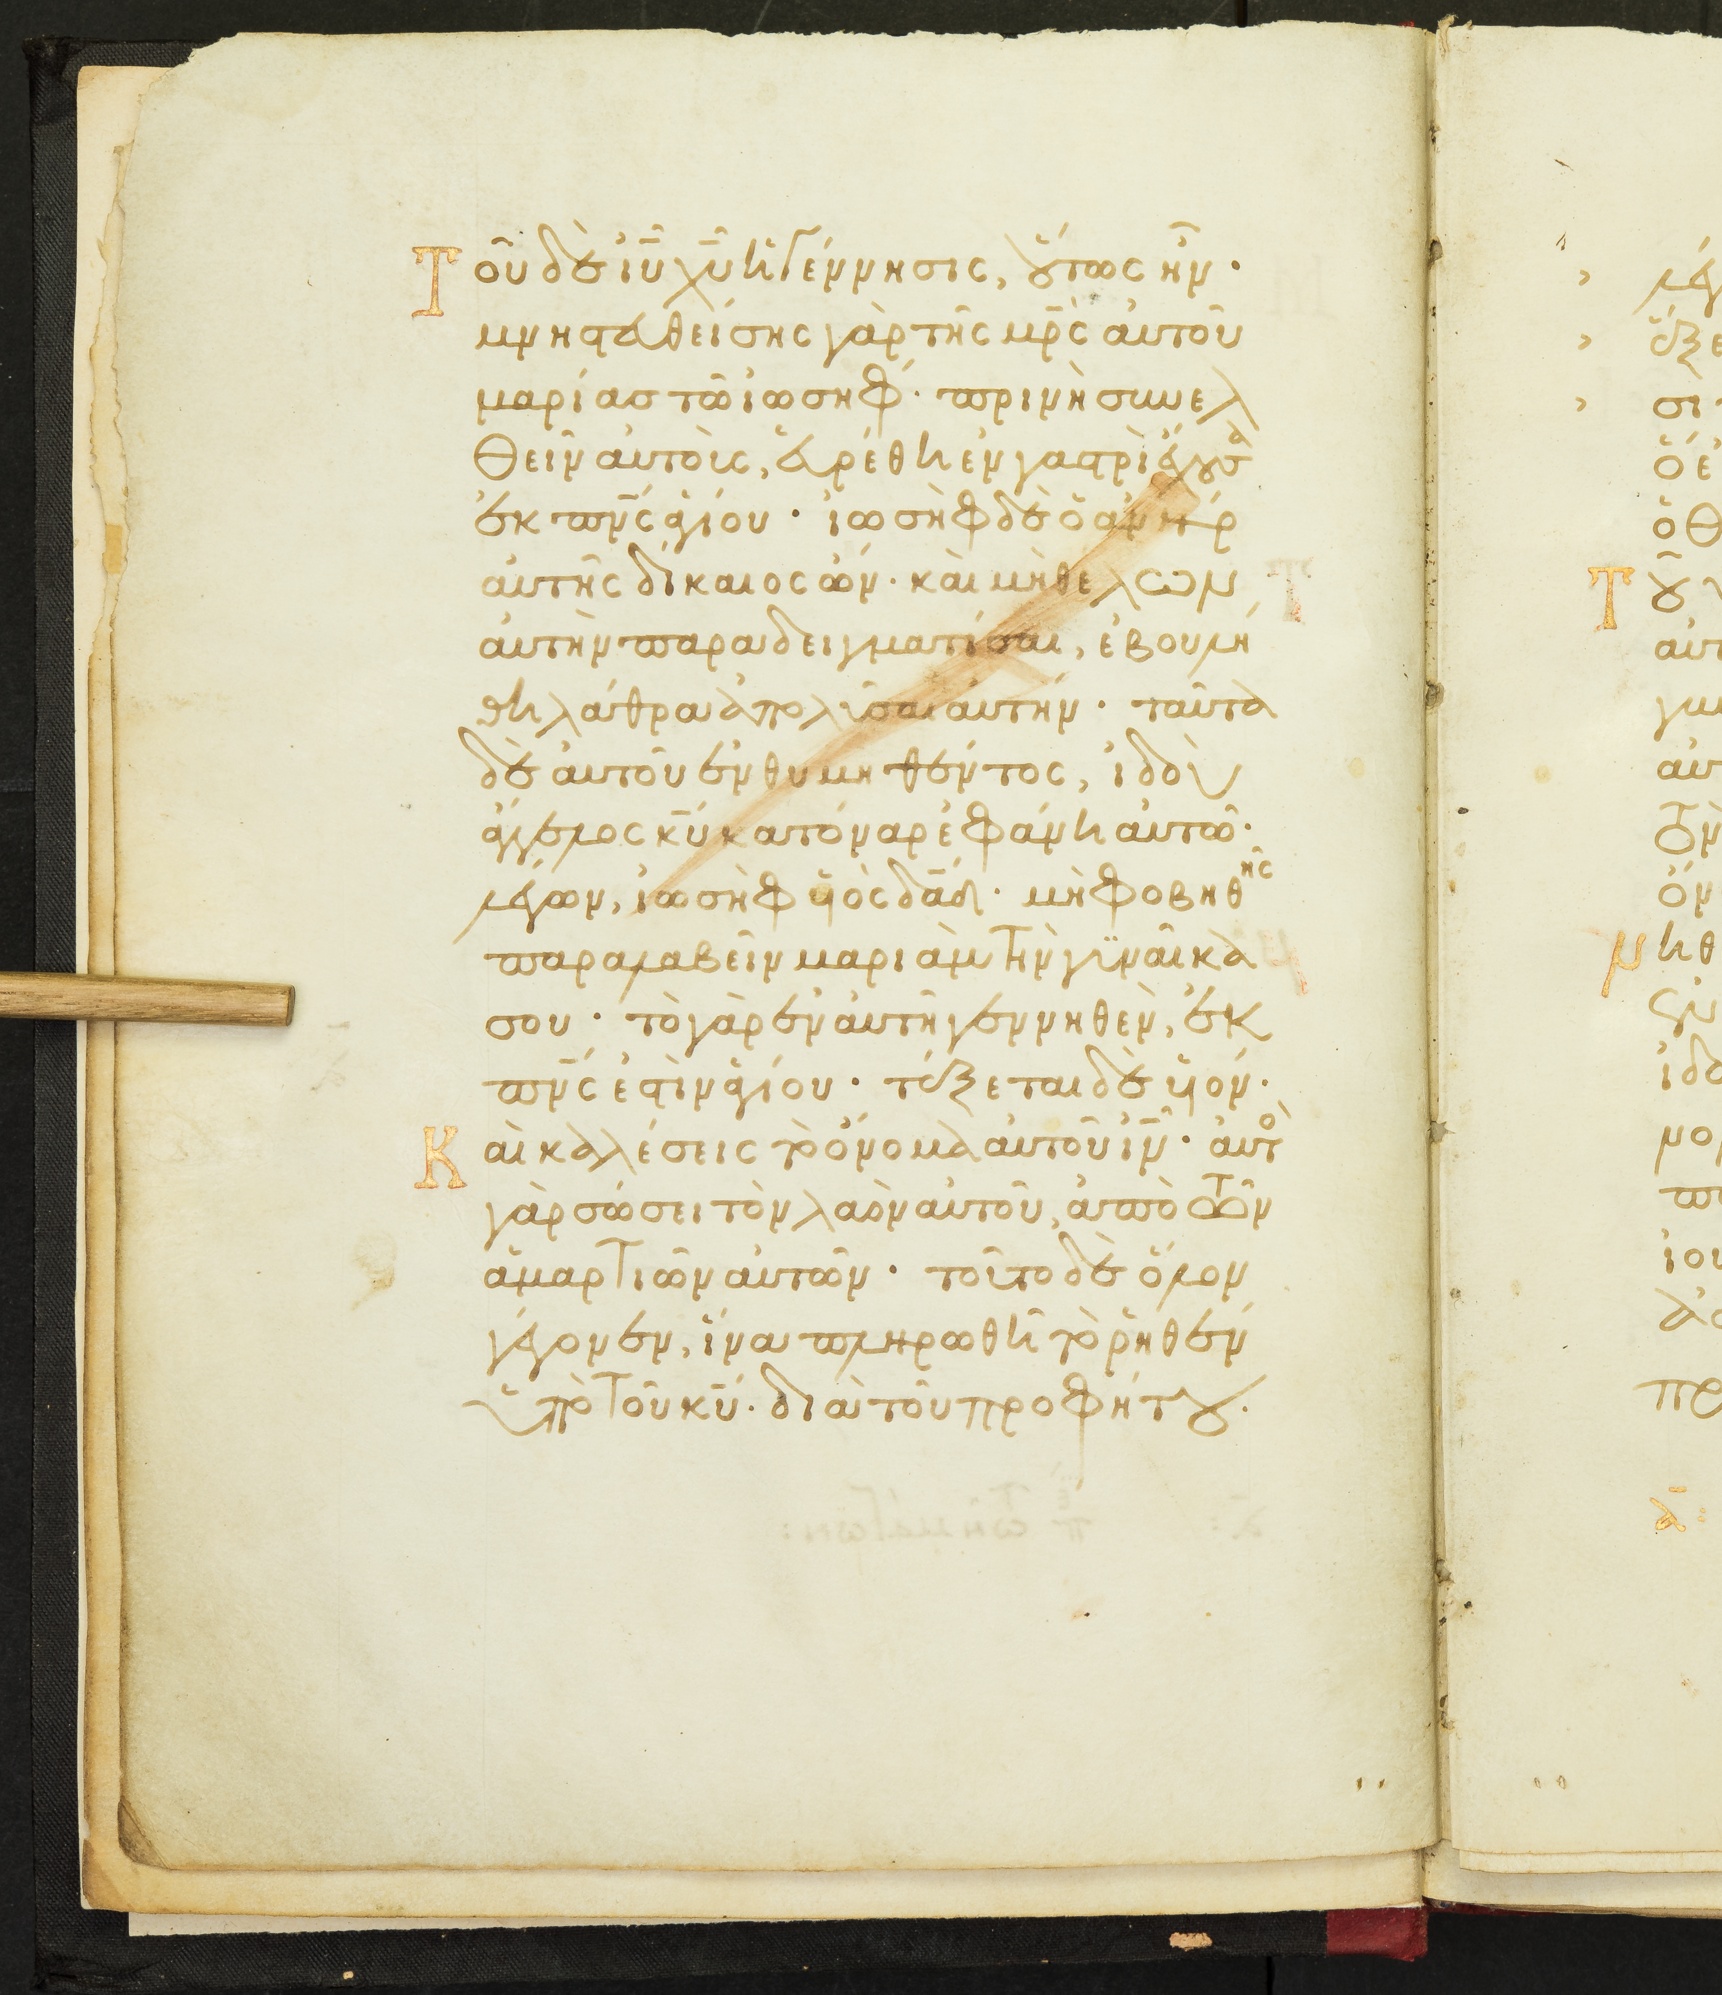 Τοῦ δὲ ἰῦ χῦ ἡ γέννησις, οὕτως ἦν·
μνηστευθείσης γὰρ τῆς μρ̅ς αὐτοῦ
μαρίας τῶ ἰωσήφ· πρινὴ συνελ
θεῖν αὐτοὺς, εὑρέθη ἐν γαστρὶ ἔχουσα
ἐκ πν̅ς ἁγίου· ἰωσὴφ δὲ ὁ ἀνὴρ
αὐτῆς δίκαιος ὤν· καὶ μὴ θέλων
αὐτὴν παραδειγματίσαι, ἐβουλή
θη λάθρα ἀπολῦσαι αὐτήν· ταῦτα
δὲ αὐτοῦ ἐνθυμηθέντος, ἰδοὺ
ἄγγελος κῦ κατόναρ ἐφάνη αὐτῶ·
λέγων, ἰωσὴφ υἱὸς δᾱδ· μὴ φοβηθῆς
παραλαβεῖν μαριὰμ τὴν γυναῖκα
σου· τὸ γὰρ ἐν αὐτῆ γεννηθὲν, ἐκ
πν̅ς ἐστὶν ἁγίου· τέξεται δὲ υἱόν·
Καὶ καλέσεις τὸ ὄνομα αὐτοῦ ἰν̅· αὐτὸς
γὰρ σώσει τὸν λαὸν αὐτοῦ, ἀπὸ τῶν
ἁμαρτιῶν αὐτῶν· τοῦτο δὲ ὅλον
γέγονεν, ἵνα πληρωθῆ τὸ ῥηθὲν
ὑπὸ τοῦ κῦ· διὰ τοῦ προφήτου·